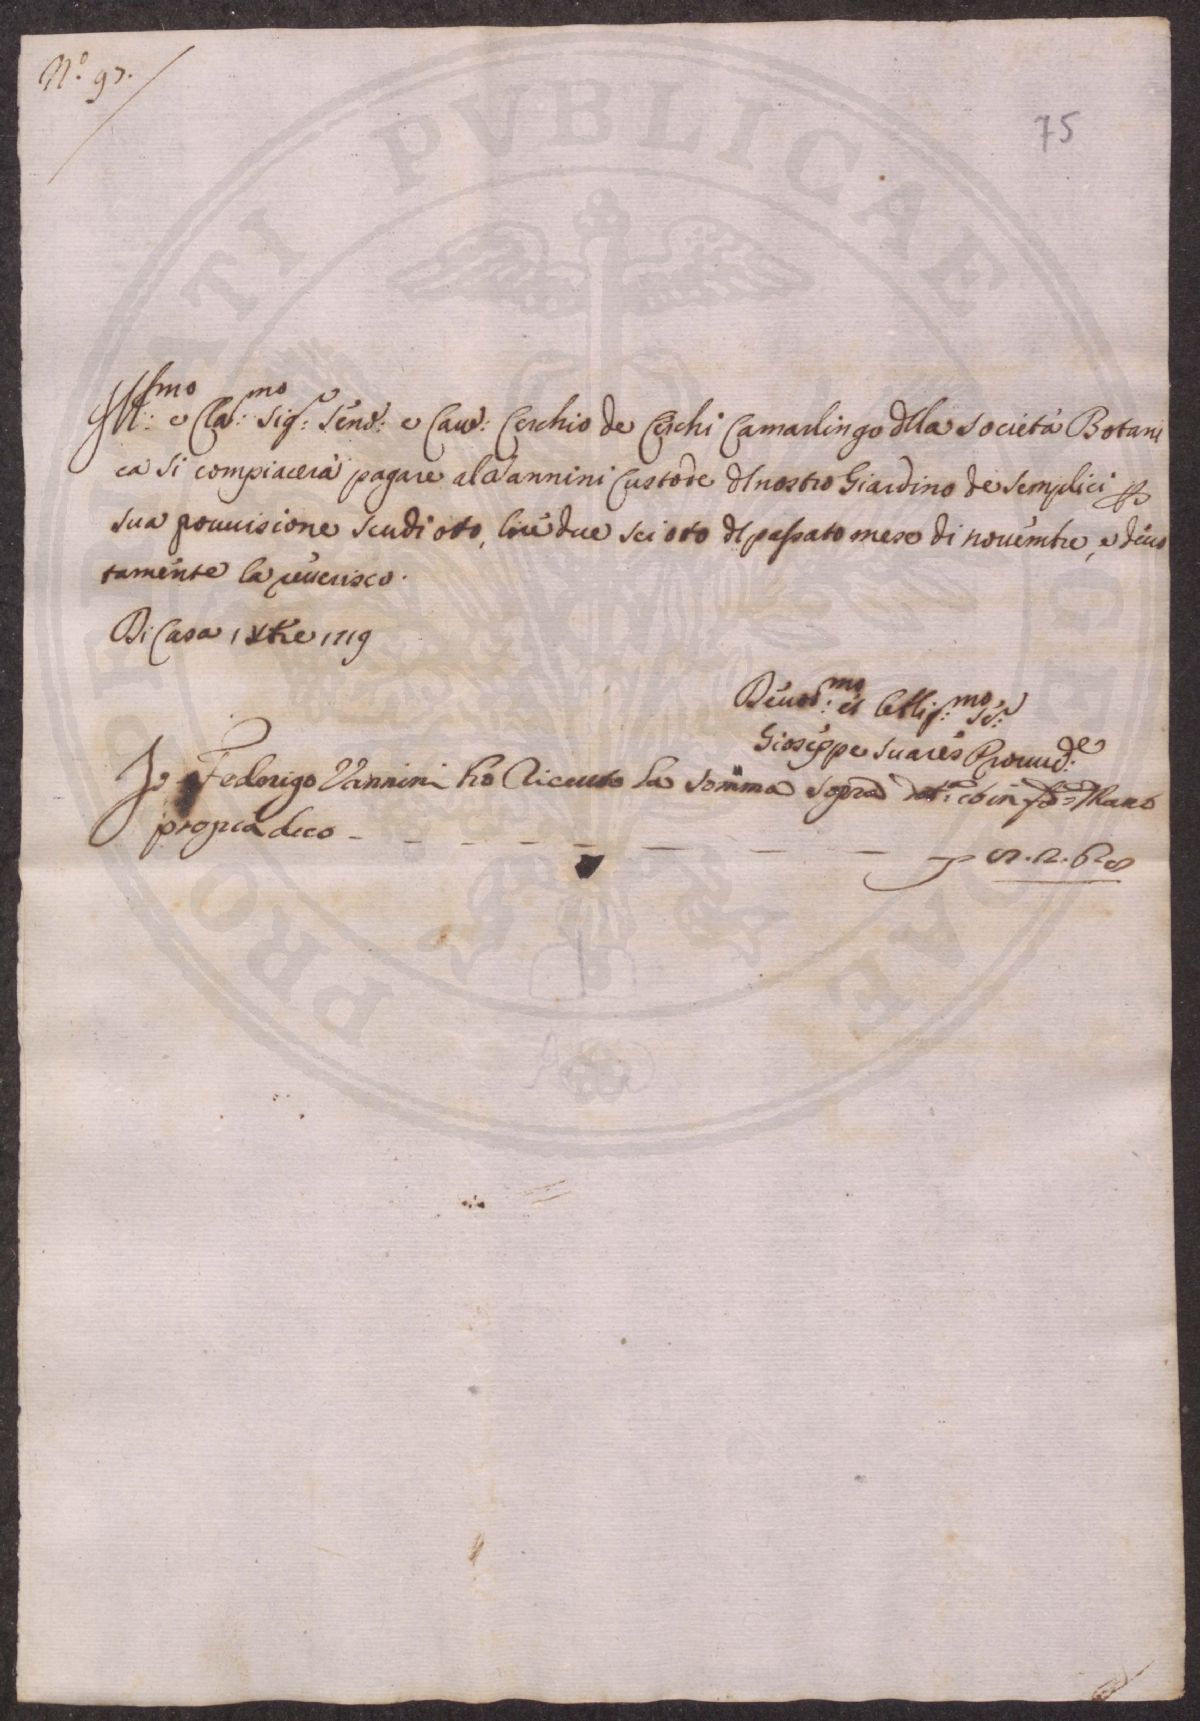 N.º 97.
75
Ill:mo e Cla:mo Sig:re Send: e Cav: Cerchio de Cerchi Camarlingo della Società Botani
ca si compiacerà pagare al Vannini Custode del nostro Giardino de Semplici p
sua provvisione scudi otto, lire due sei otto del passato mese di novembre, e devo
tamente la reverisco.
Di Casa 1 Xbre 1719
Devot:mo et Obblig:mo Se:
Gioseppe Suares Provved:e
Io Federigo Vannini ho Riceuto la somma sopra mano
propria dico — 8. 2. 6 8
PRO VTILITATI PVBLICAE